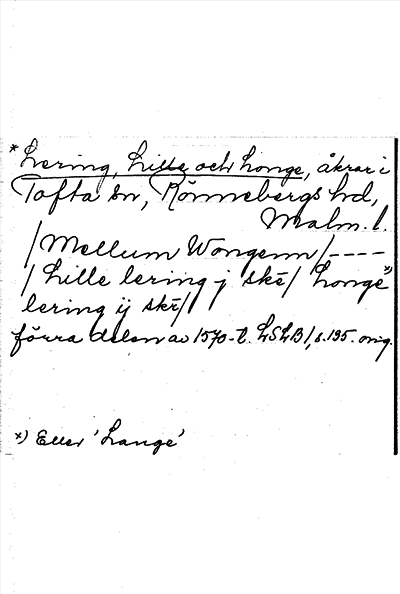 * Lering, Lille och Longe, åkrar i
Tofta sn, Rönnebergs hd,
Malm. l.
/Mellum Wongenn/----
/ Lille lering j skē/ Longe *)
lering ij skē//
förra delen av 1570-t. LSLB1, s. 135. orig.
*) Eller 'Lange'